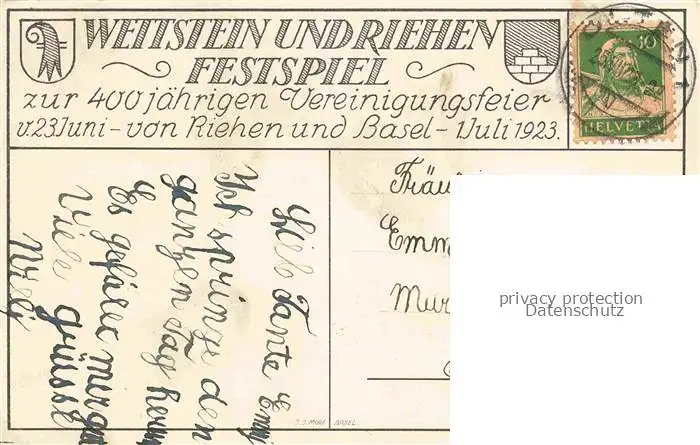 WETTSTEIN UND RIEHEN
FESTSPIEL
zur 400jährigen Vereinigungsfeier
v. 23 Juni - von Riehen und Basel - 1 Juli 1923.
10
HELVETIA
OLTEN 1
Lieb Tante Emmy
Ich springe den
ganzen Tag herum
Es gefällt mir gut
Viele grüsse
Willy
Fräul
Emm
Mur
privacy protection
Datenschutz
BASEL.